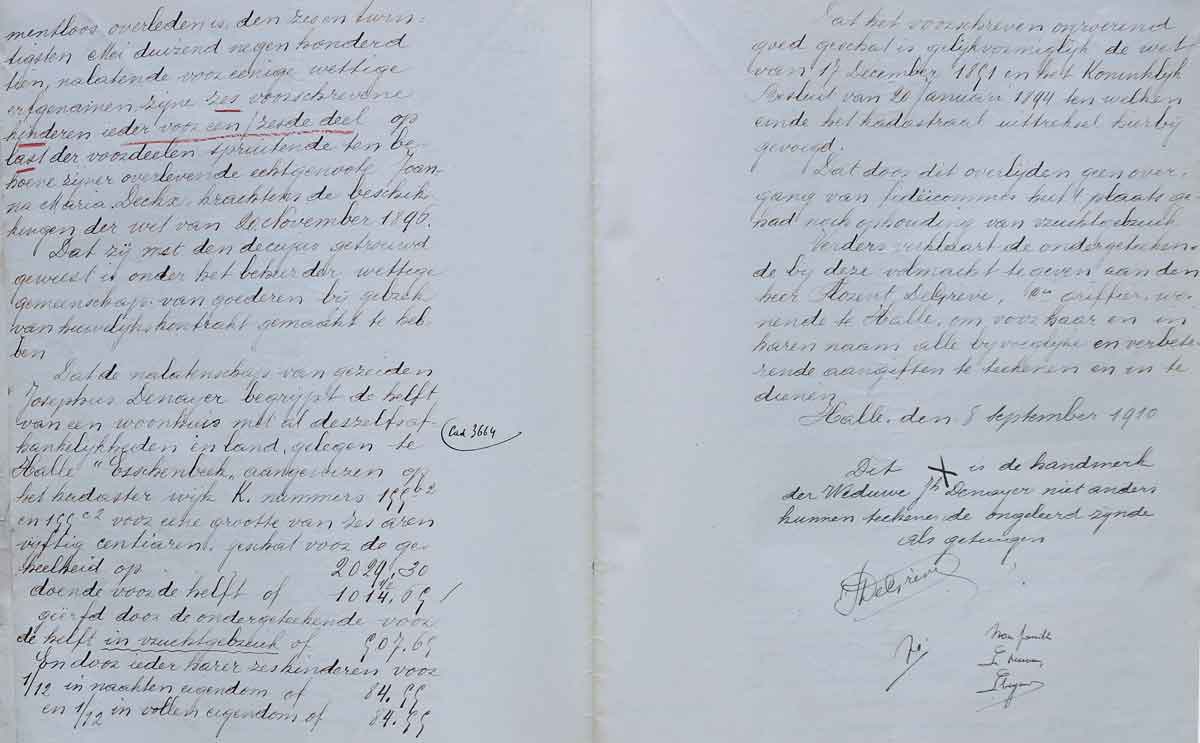 mentloos overleden is, den zes en twin-
tigsten Mei duizend negen honderd
tien, nalatende voor eenige wettige
erfgenamen zijne zes voorschrevene
kinderen ieder voor een/zesde deel op
last der voordeelen spruitende ten be-
hoeve zijner overlevende echtgenoote Joan-
na Maria Deckx, krachtens de beschik-
kingen der wet van 20 November 1896.
Dat zij met den decujus getrouwd
geweest is onder het beheer der wettige
gemeenschap van goederen bij gebrek
van huwelijkskontrakt gemaakt te heb-
ben
Dat de nalatenschap van gezeiden
Josephus Denayer begrijpt de helft
van een woonhuis met al deszelfs af-
hankelijkheden en land, gelegen te
Halle "Esschenbeek" aangewezen op
het kadaster wijk K. nummers
en voor eene grootte van zes aren
vijftig centiaren, geschat voor de ge-
heelheid op
doende voor de helft of
geërfd door de ondergeteekende voor
de helft in vruchtgebruik of
En door ieder harer zes kinderen voor
1/12 in naakten eigendom of
en 1/12 in vollen eigendom of
Cad 3664
Dat het voorschreven onroerend
goed geschat is gelijkvormiglijk de wet
van 17 December 1851 en het Koninklijk
Besluit van 20 Januari 1894 ten welken
einde het kadastraal uittreksel hierbij
gevoegd.
Dat door dit overlijden geen over-
gang van fideïcommis heeft plaats ge-
had noch ophouding van vruchtgebruik
Verders verklaart de ondergeteeken-
de bij deze volmacht te geven aan den
heer Florent DeGreve, griffier, wo-
nende te Halle, om voor haar en in
haren naam alle bijvoeglijke en verbete-
rende aangiften te teekenen en in te
dienen
Halle, den 8 September 1910
Dit X is de handmerk
der Weduwe Jh Denayer niet anders
kunnen teekenen de ongeleerd zijnde
als getuigen
DeGrève